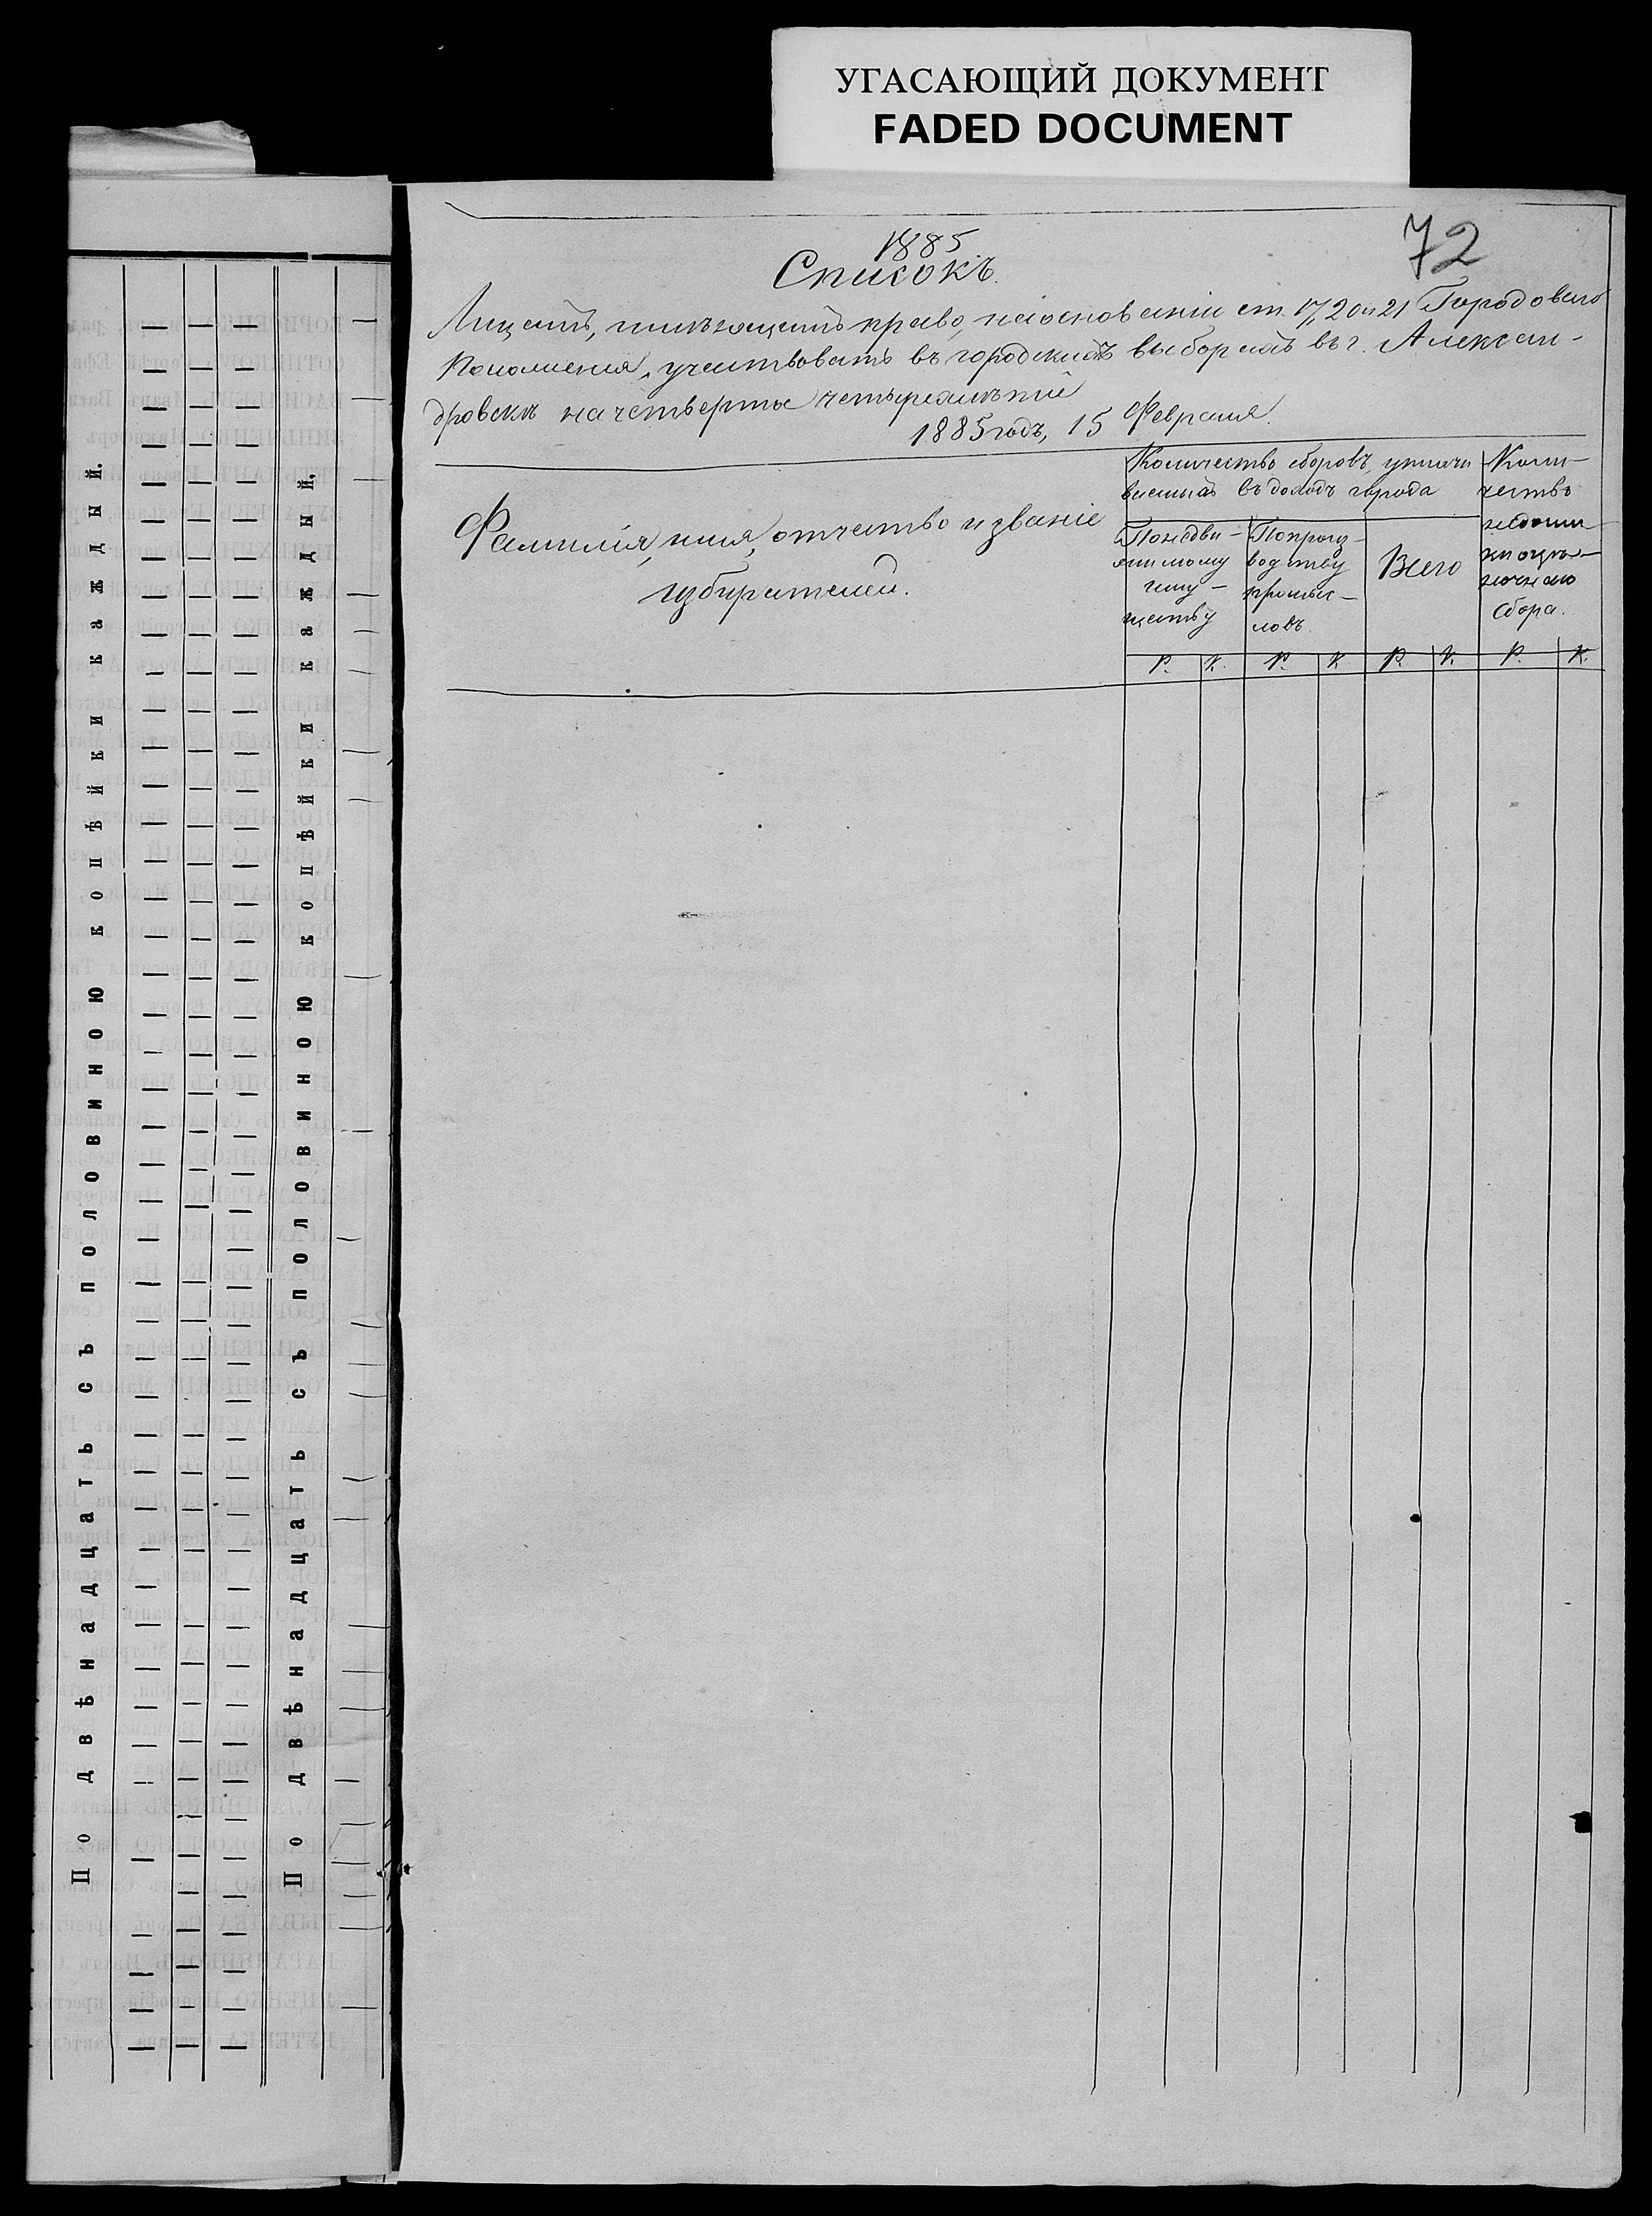 УГАСАЮЩИЙ ДОКУМЕНТ
FADED DOCUMENT
72
1885
Списокъ.
Лицамъ, имѣющимъ право, на основаніи ст. 17, 20 и 21 Городоваго
Положенія, участвовать въ городскихъ выборахъ въ г. Алексан-
дровскѣ на четвертое четырехлѣтіе
1885 годъ, 15 Февраля.
Фамилія, имя, отчество и званіе
избирателей.
Количество сборовъ, уплачи
ваемыхъ въ доходъ города
По недви-
жимому
иму-
ществу
По произ-
водству
промыс-
ловъ.
Всего
Коли-
чество
недоим-
ки оцѣ-
ночнаго
сбора.
Р. К. Р. К Р. К. Р. К.
По двѣнадцать съ половиною копѣйки каждый.
По двѣнадцать съ половиною копѣйки каждый.